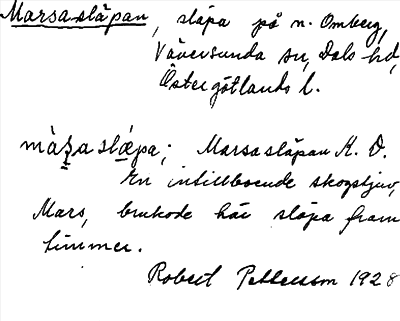 Marsasläpan, släpa på n. Omberg,
Väversunda sn, Dals hd,
Östergötlands l.
màʂa slæpa; Marsasläpan K. O.
En intillboende skogstjuv,
Mars, brukade här släpa fram
timmer.
Robert Pettersson 1928